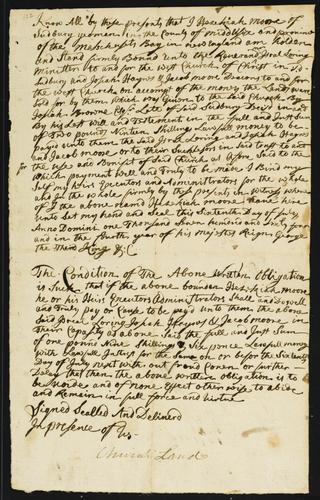 Know All by these presents that I Hezekiah moore of
Sudbury yeoman in the County of middlsex and province
of the Masachusets Bay in newEngland am holden
and Stand firmly Bound unto the Reverend Loring
Minister to and for the west Church of Christ in
Sudbury and Josiah Haynes & Jacob moore Deacons to and for
the west Church on accompt of the money the Land were
sold for by them which was given to the said Church by
Josiah Browne Late of Sudbury Decsd named
By his Last will and Testement in the full and Just Sum
of two pounds Ninten Shillings Lawfull money to be
paye unto them the said Loring and Josiah Haynes
and Jacob moore or to their Successors in said trust to and
for the use and Benifit of said Church as afore Said to the
which payment well and Truly to be made I Bind my
Self my heirs Executors and Administrators for the whole
and for the whole firmly by these presents in witness whereof
I the above named Hezekiah moore have here
unto Set my hand and Seal this Sixteenth Day of July
Anno Domini one Thousand Seven hundred and Sixty four
and in the fourth year of his majestys Reign George
the Third King &c
The Condition of The Above written Obligation
is Such that if the above bounden Hezekiah moore
he or his Heirs Executors Administrators Shall and Do well
and Truly pay or Cause to be payd unto them the above
Said Loring Josiah Haynes & Jacob moore in their
Capasity as above Said the full and Just Sum
of one pound Nine Shillings & Six pence Lawfull money
with Lawfull Intrest for the Same on or before the Sixteenth
Day of July next with out fraud Coven or further
Delay that then the above written obligation is to
be Voide and of none Effect other wise to abide
and Remain in full force and virtue
Signed Sealled And Deliverd
In presence of Us
Church Land